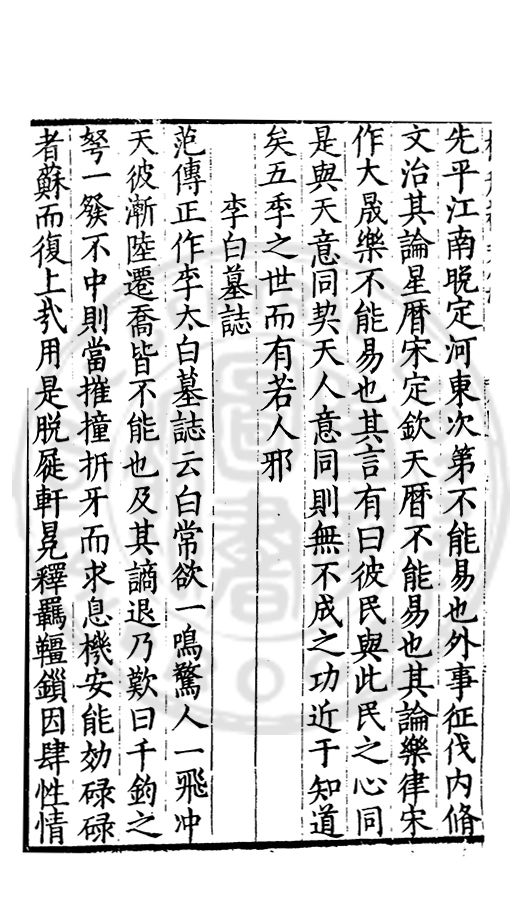 先平江南晚定河東次第不能易也外事征伐内脩
文治其論星暦宋定欽天暦不能易也其論樂律宋
作大晟樂不能易也其言有曰彼民與此民之心同
是與天意同契天人意同則無不成之功近于知道
矣五季之世而有若人邪
李白墓誌
范傳正作李太白墓誌云白常欲一鳴驚人一飛冲
天彼漸陸遷喬皆不能也及其謫退乃歎曰千鈞之
弩一發不中則當摧撞折牙而求息機安能効碌碌
者蘇而復上㢤用是脱屣軒冕釋羈韁鎻因肆性情